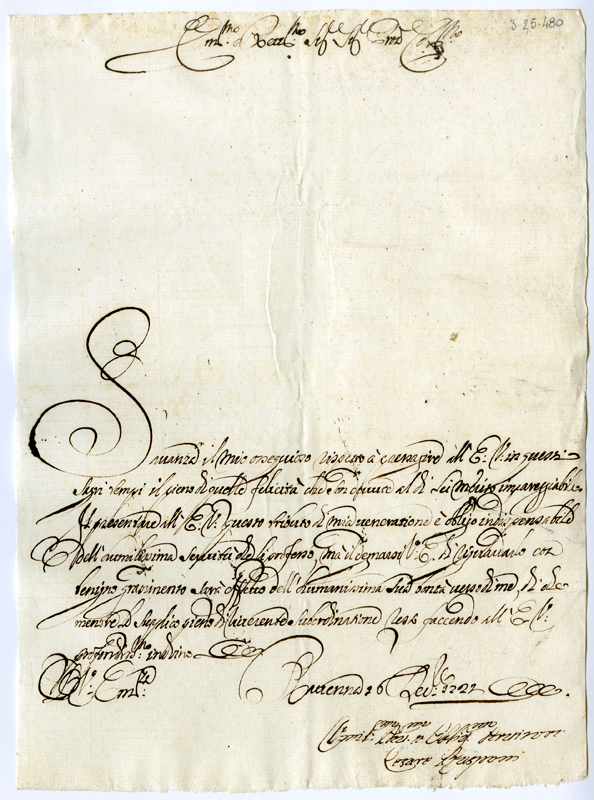 3-25-480
Em.mo e Rev.mo Sig.r Sig.r Pron Col.mo
S'avanza il mio ossequioso rispetto à pregare all'E. V. in questi
sagri tempi il pieno di quelle felicità che son dovute al di Lei merito impareggiabile.
Il presentare all'E. V. questo tributo di mia venerazione è obligo indispensabile
dell'umilissima servitù che le professo, ma il degnarsi l'E. V. di riguardarlo con
benigno gradimento sarà effetto dell'humanissima sua bontà verso di me, di che
mentre La supplico pieno di riverente subordinatione resto facendo all'E. V.
profondiss.mo inchino
Di V. Em.za
Ravenna 16 Xbre 1722
Umil.mo Dev.mo et Oblig.mo Servitore
Cesare Rasponi